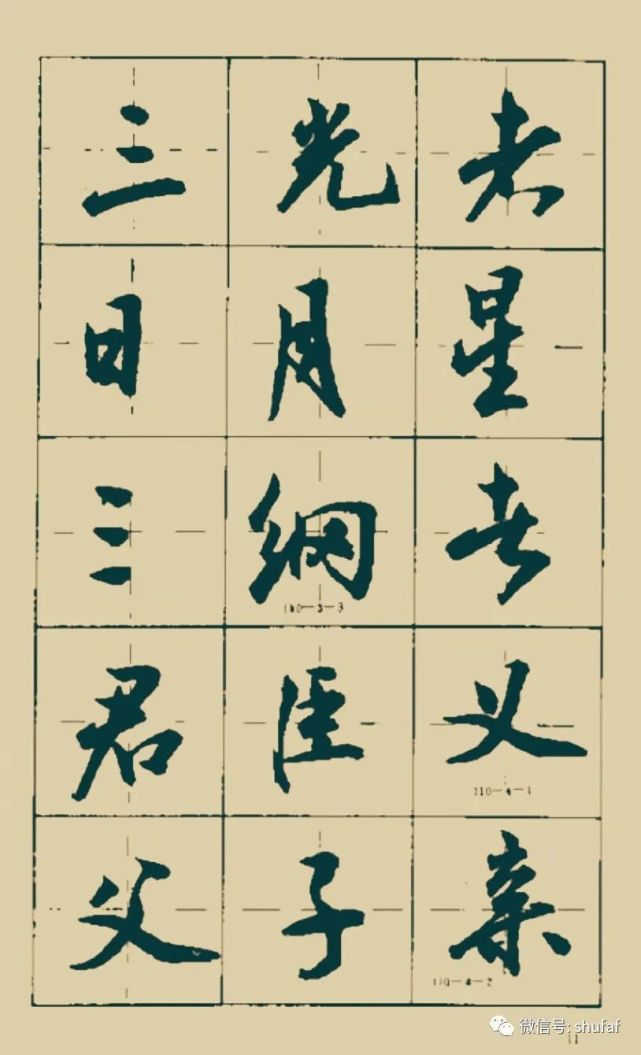 三光者
日月星
三纲者
110-3-3
君臣义
110-4-1
父子亲
110-4-2
微信号: shufaf
11